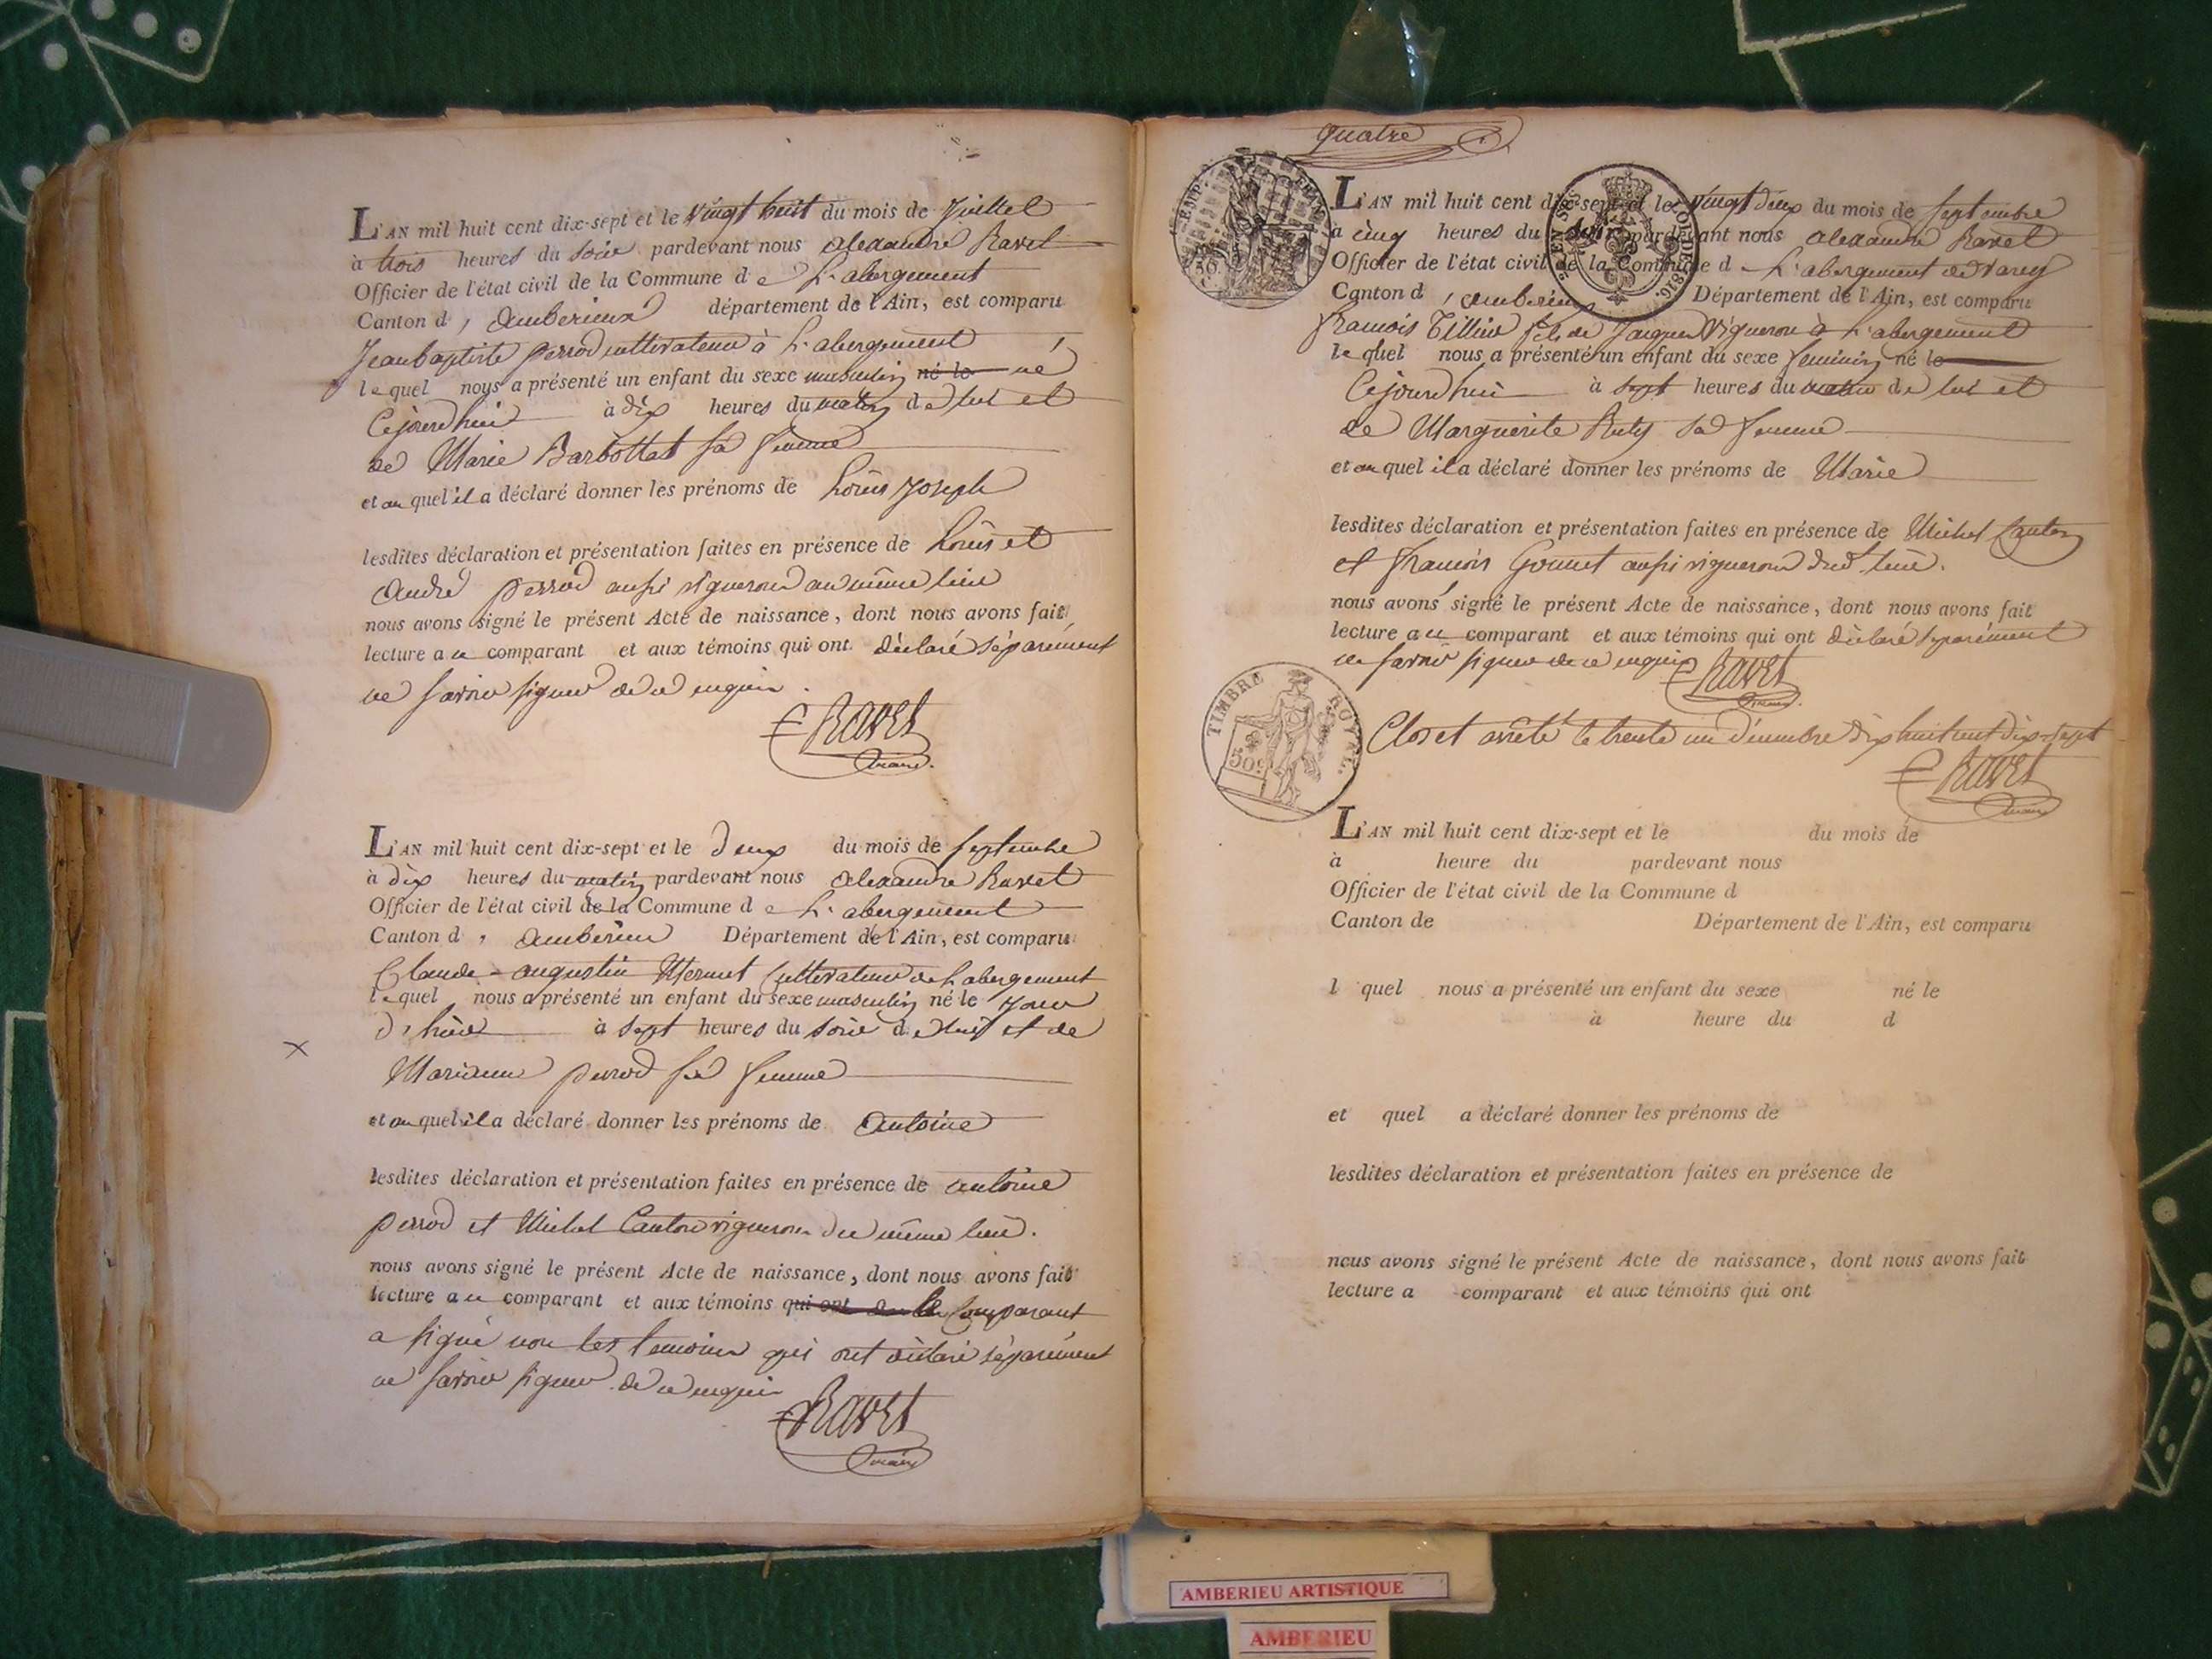 L'AN mil huit cent dix-sept et le vingt huit du mois de Juillet
à trois heures du soir pardevant nous alexandre Ravet
Officier de l'état civil de la Commune de L'abergement
Canton d'amberieux département de l'Ain, est comparu
Jean baptiste perrod cultivateur à L'abergement
lequel nous a présenté un enfant du sexe masculin né le né
Cejourdhui à dix heures du matin de lui et
de Marie Barbottat sa femme
et au quel il a déclaré donner les prénoms de Loüis Joseph
lesdites déclaration et présentation faites en présence de Loüis et
André perrod aussi vignerons au même lieu
nous avons signé le présent Acte de naissance, dont nous avons fait
lecture au comparant et aux témoins qui ont déclaré séparément
ne savoir signer de ce enquis.
Ravet
maire.
L'AN mil huit cent dix-sept et le deux du mois de septembre
à dix heures du matin pardevant nous alexandre Ravet
Officier de l'état civil de la Commune de L'abergement
Canton d'amberieu Département de l'Ain, est comparu
Claude-augustin Mermet Cultivateur de L'abergement
lequel nous a présenté un enfant du sexe masculin né le jour
d'hier à sept heures du soir de lui et de
Marianne perrod sa femme
et au quel il a déclaré donner les prénoms de antoine
lesdites déclaration et présentation faites en présence de antoine
perrod et Michel Canton vignerons du même lieu.
nous avons signé le présent Acte de naissance, dont nous avons fait
lecture au comparant et aux témoins qui ont le Comparant
a signé non les temoins qui ont déclaré séparément
ne savoir signer de ce enquis
Ravet
maire
quatre
EMP. FRAN.
L'AN mil huit cent dix-sept et le vingt deux du mois de septembre
à cinq heures du soir pardevant nous alexandre Ravet
Officier de l'état civil de la Commune de L'abergement de varey
Canton d'amberieu Département de l'Ain, est comparu
francois Tillier fils de Jacques vigneron à L'abergement
lequel nous a présenté un enfant du sexe feminin né le
Cejourdhui à sept heures du matin de lui et
de Marguerite Ruty sa femme
et au quel il a déclaré donner les prénoms de Marie
lesdites déclaration et présentation faites en présence de Michel Canton
et francois Gonnet aussi vignerons dud. lieu.
nous avons signé le présent Acte de naissance, dont nous avons fait
lecture au comparant et aux témoins qui ont déclaré séparément
ne savoir signer de ce enquis
Ravet
maire.
TIMBRE ROYAL.
50c
Clos et arrêté le trente un décembre dix huit cent dix-sept
Ravet
maire
L'AN mil huit cent dix-sept et le du mois de
à heure du pardevant nous
Officier de l'état civil de la Commune d
Canton de Département de l'Ain, est comparu
l quel nous a présenté un enfant du sexe né le
à heure du d
et quel a déclaré donner les prénoms de
lesdites déclaration et présentation faites en présence de
nous avons signé le présent Acte de naissance, dont nous avons fait
lecture a comparant et aux témoins qui ont
AMBERIEU ARTISTIQUE
AMBERIEU